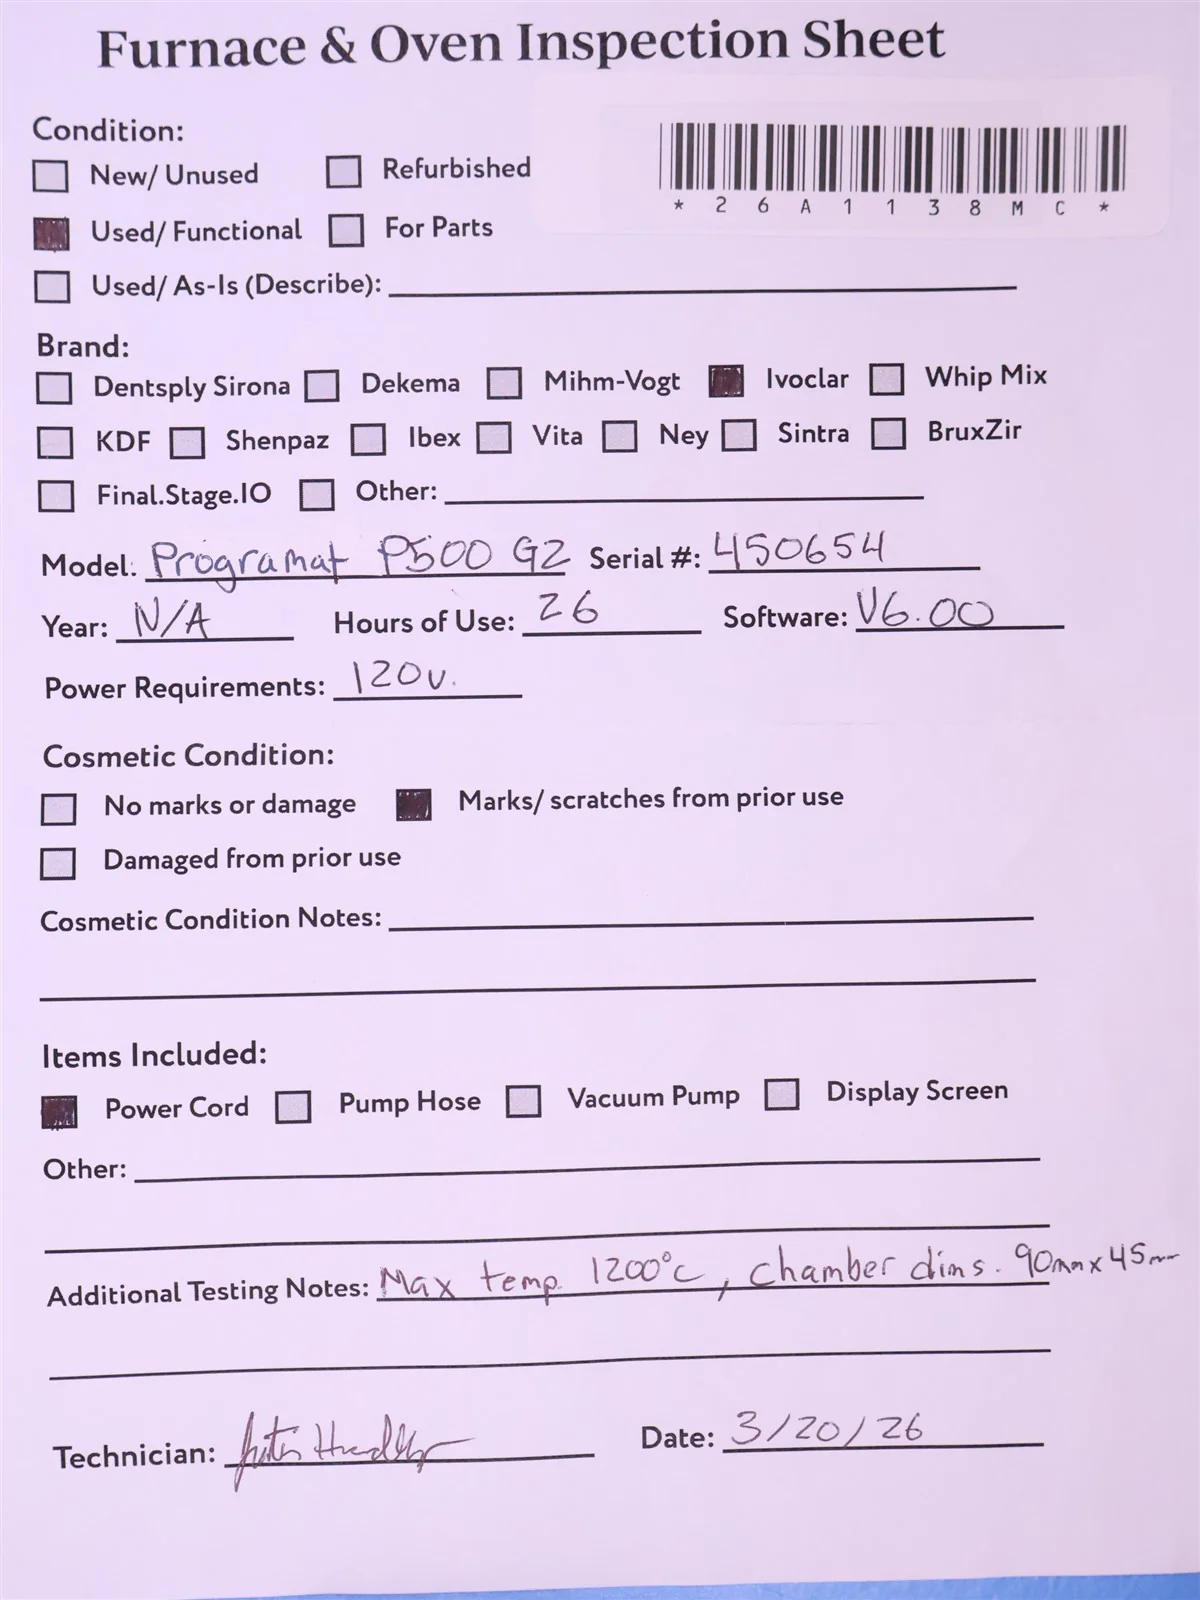 Furnace & Oven Inspection Sheet
Condition:
New/ Unused Refurbished
* 2 6 A 1 1 3 8 M C *
Used/ Functional For Parts
Used/ As-Is (Describe):
Brand:
Dentsply Sirona Dekema Mihm-Vogt Ivoclar Whip Mix
KDF Shenpaz Ibex Vita Ney Sintra BruxZir
Final.Stage.IO Other:
Model: Programat P500 G2 Serial #: 450654
Year: N/A Hours of Use: 26 Software: V6.00
Power Requirements: 120v.
Cosmetic Condition:
No marks or damage Marks/ scratches from prior use
Damaged from prior use
Cosmetic Condition Notes:
Items Included:
Power Cord Pump Hose Vacuum Pump Display Screen
Other:
Additional Testing Notes: Max temp. 1200°c, chamber dims. 90mm x 45mm
Technician:
Date: 3/20/26